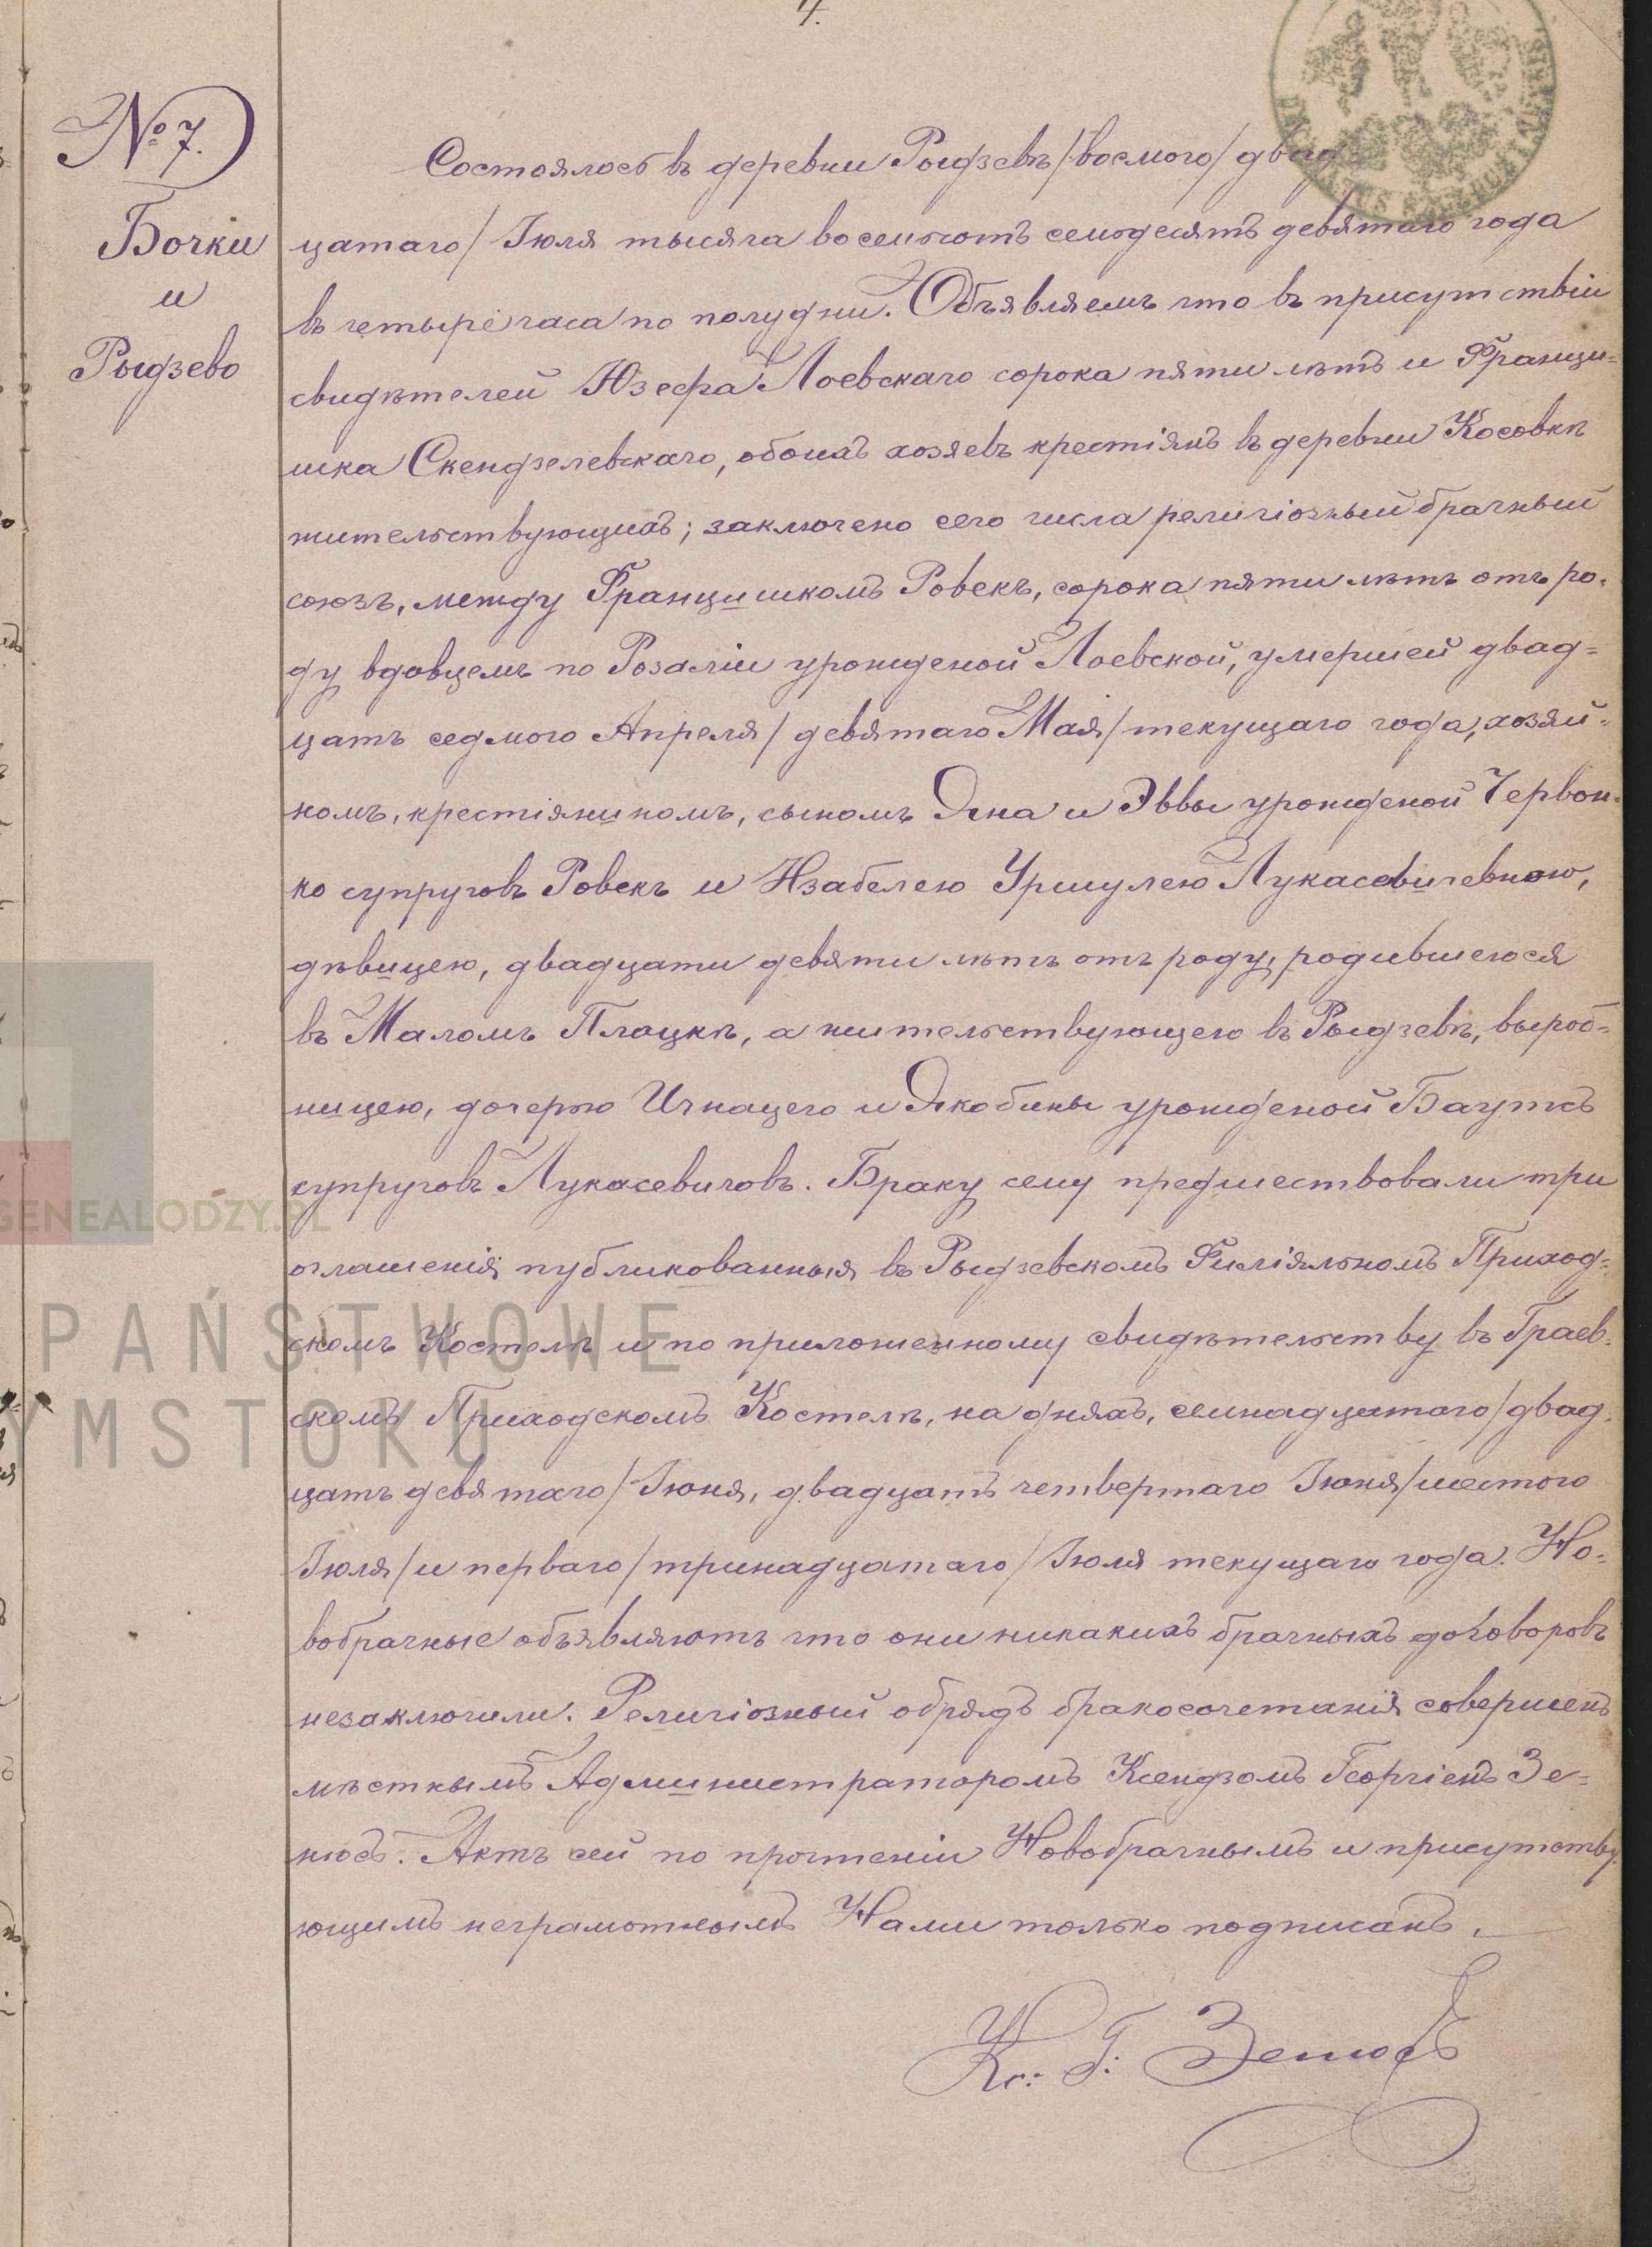 4.
№ 7.
Бочки
и
Рыдзево
Состоялось въ деревни Рыдзевѣ /восмого/ двад
цатаго/ Іюля тысяча восемьсотъ семьдесятъ девятаго года
въ четыре часа по полудни. Объявляемъ что въ присутствіи
свидѣтелей Юзефа Лоевскаго сорока пяти лѣтъ и Франци-
шка Скендзелевскаго, обоихъ хозяевъ крестіянъ въ деревни Косовкѣ
жительствующихъ; заключено сего числа религіозный брачный
союзъ, между Францишкомъ Ровекъ, сорока пяти лѣтъ отъ ро-
ду вдовцемъ по Розаліи урожденой Лоевской, умершей двад-
цать седмого Апреля/ девятаго Мая/ текущаго года, хозяй-
номъ, крестіяниномъ, сыномъ Яна и Эввы урожденой Червон-
ко супруговъ Ровекъ и Изабелею Уршулею Лукасевичевною,
дѣвицею, двадцати девяти лѣтъ отъ роду, родившеюся
въ Маломъ Плоцкѣ, а жительствующею въ Рыдзевѣ, вырob-
ницею, дочерью Игнацего и Якобины урожденой Баутсъ
супруговъ Лукасевичовъ. Браку сему предшествовали три
оглашенія публикованныя въ Рыдзевскомъ Филіяльномъ Приход-
скомъ Костелѣ и по приложенному свидѣтельству въ Граев-
скемъ Приходскомъ Костелѣ, на дняхъ, семнадцатаго/двад-
цать девятаго/ Іюня, двадцать четвертаго Іюня/шестого
Іюля/ и перваго/тринадцатаго/ Іюля текущаго года. Но-
вобрачные объявляютъ что они никакихъ брачныхъ договоровъ
незаключили. Религіозный обрядъ бракосочетанія совершенъ
мѣстнымъ Администраторомъ Ксендзомъ Георгіемъ Зе-
нюсъ. Актъ сей по прочтеніи Новобрачнымъ и присутству-
ющимъ неграмотнымъ Нами только подписанъ.
Кс: Г: Зенюсъ
GENEALODZY.PL
PAŃSTWOWE
YMSTOKU